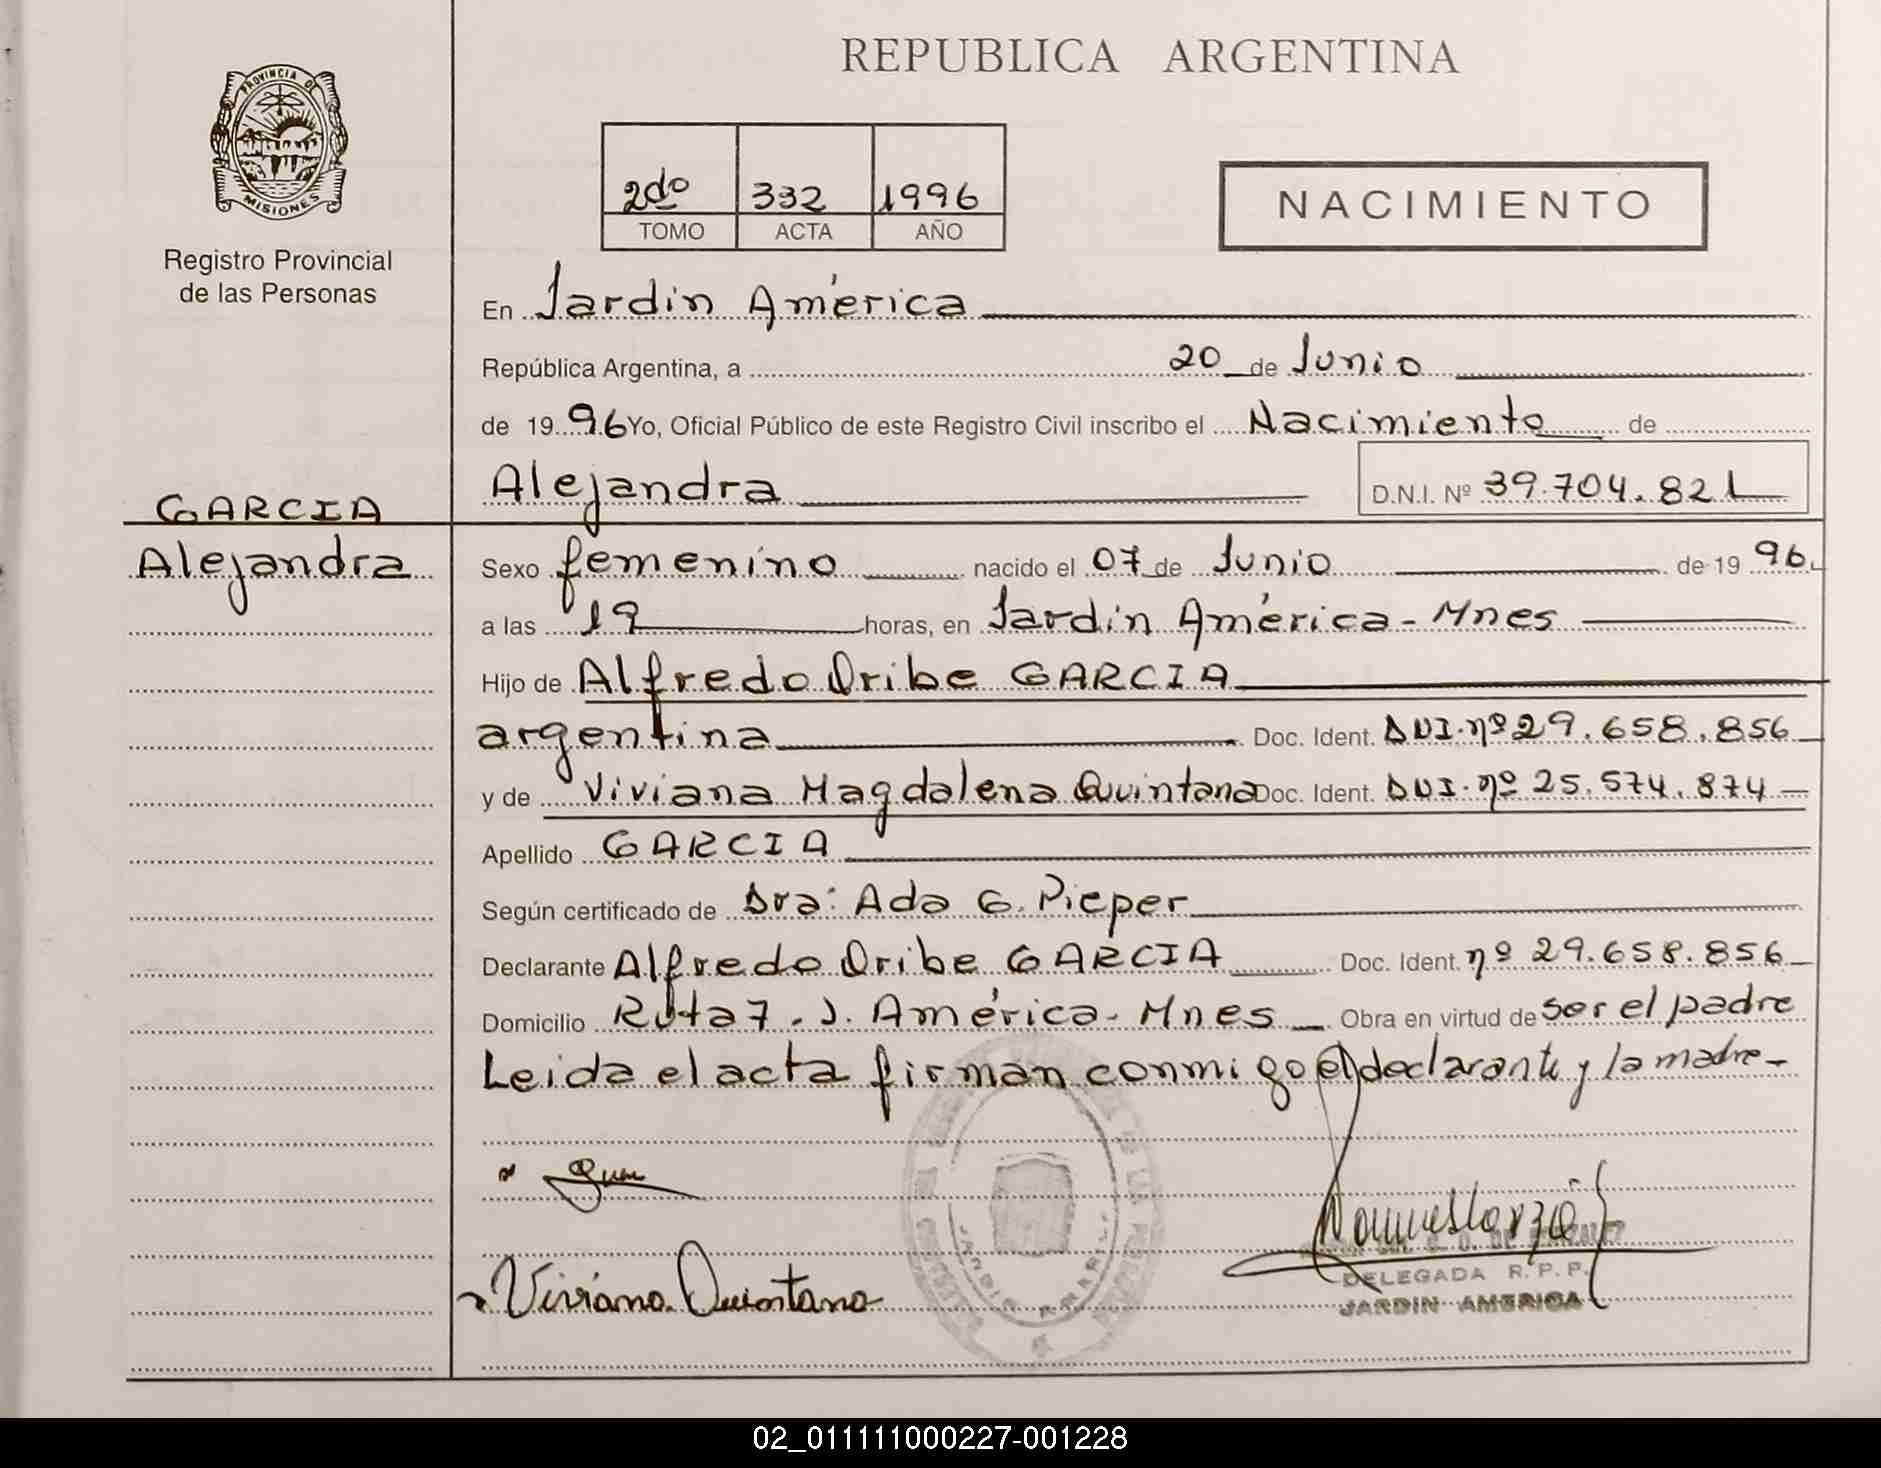 REPUBLICA ARGENTINA
PROVINCIA DE
MISIONES
Registro Provincial
de las Personas
2do 332 1996
TOMO ACTA AÑO
NACIMIENTO
En Jardin América
República Argentina, a 20 de Junio
de 1996 Yo, Oficial Público de este Registro Civil inscribo el Nacimiento de
Alejandra D.N.I. Nº 39.704.821
GARCIA
Alejandra
Sexo femenino nacido el 07 de Junio de 19 96
a las 19 horas, en Jardin América - Mnes
Hijo de Alfredo Oribe GARCIA
argentina Doc. Ident. DNI. nº 29.658.856
y de Viviana Magdalena Quintana Doc. Ident. DNI. nº 25.574.874
Apellido GARCIA
Según certificado de Dra: Ada G. Pieper
Declarante Alfredo Oribe GARCIA Doc. Ident. nº 29.658.856
Domicilio Ruta 7. J. América - Mnes Obra en virtud de ser el padre
Leida el acta firman conmigo el declarante y la madre-
Viviana Quintana
DELEGADA R.P.P.
JARDIN AMERICA
02_011111000227-001228